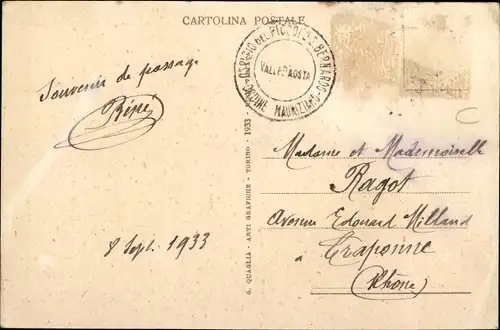 CARTOLINA POSTALE
OSPIZIO DEL PICCOLO S. BERNARDO
VALLE D'AOSTA
ORDINE MAURIZIANO
Souvenir de passage
Réné
8 Sept. 1933
G. QUAGLIA - ARTI GRAFICHE - TORINO - 1933 -
Madame et Mademoiselle
Ragot
Avenue Edouard Millaud
à Craponne
(Rhône)